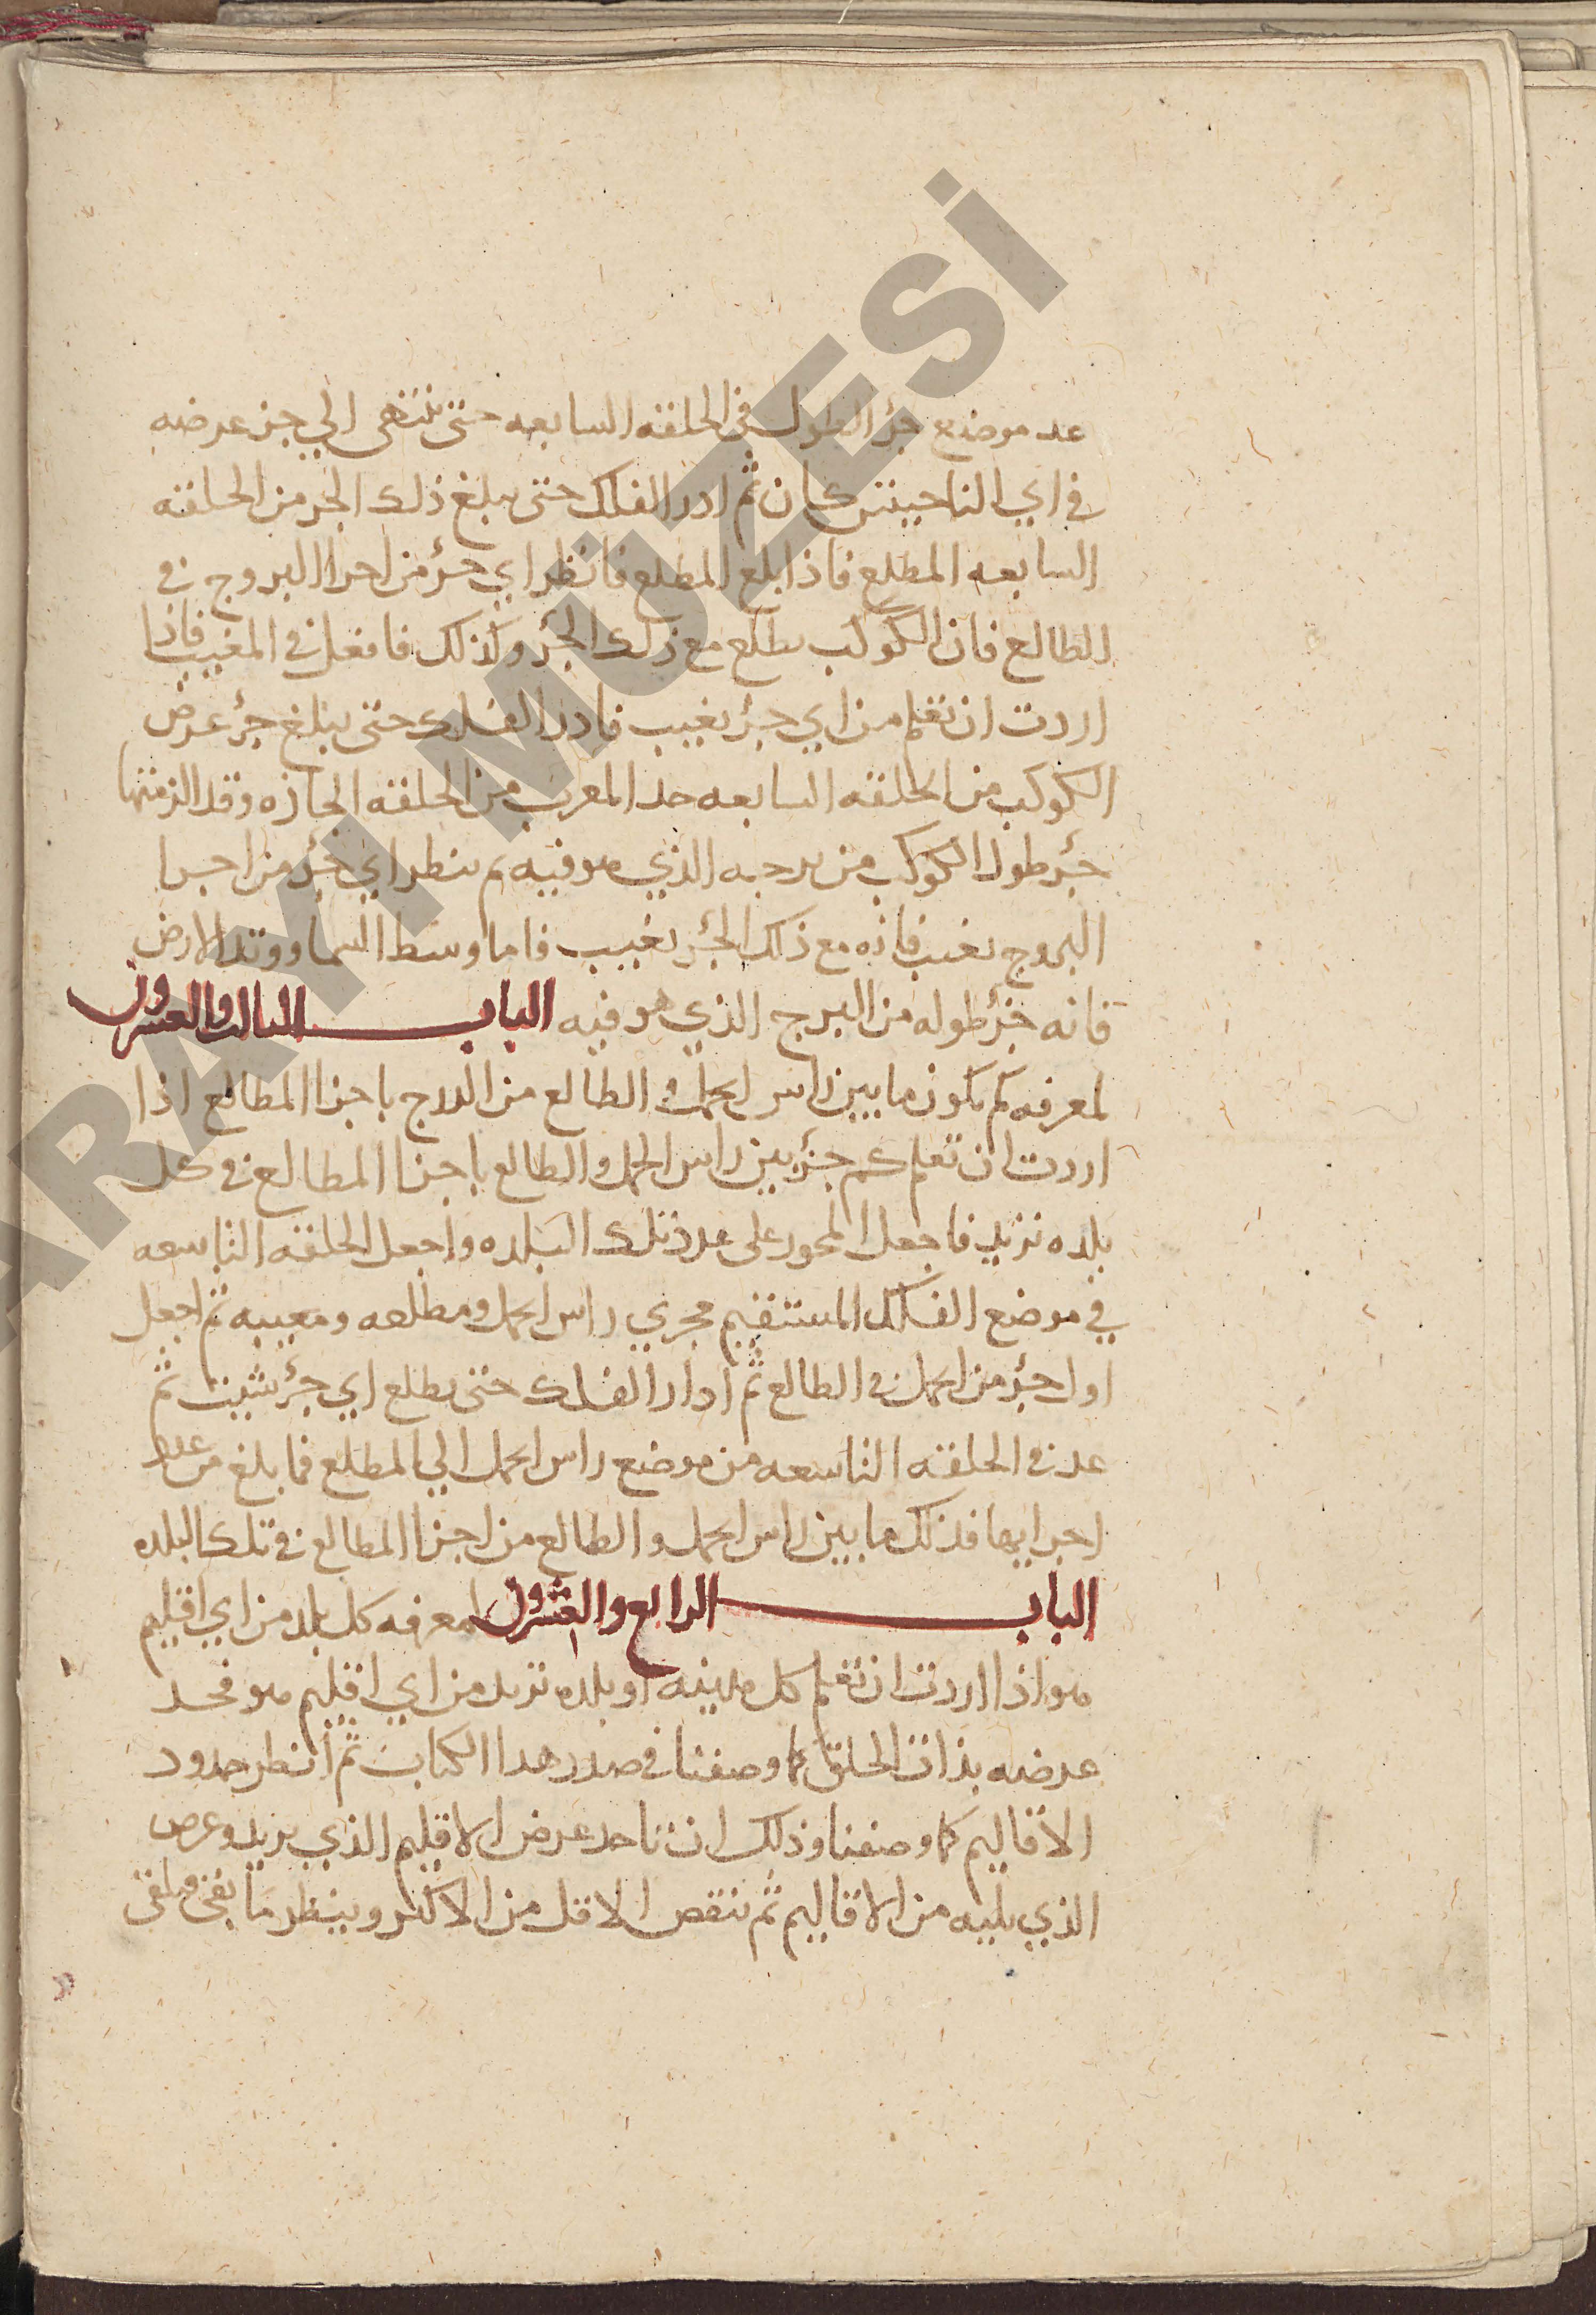 عد موضع جز الطول في الحلقه السابعه حتى تنتهى الي جز عرضه
في اي الناحيتين كان ثم ادر الفلك حتى يبلغ ذلك الجز من الحلقه
السابعه المطلع فاذا بلع المطلع فانظر اي جزؤ من اجزا البروج في
الطالع فان الكوكب يطلع مع ذلك الجزؤ وكذلك فافعل في المغيب فاذا
اردت ان تعلم من اي جزؤ يغيب فادر الفلك حتى يبلغ جزؤ عرض
الكوكب من الحلقه السابعه حد المغرب من الحلقه وقد الزمتها
جزؤ طول الكوكب من برجه الذي هو فيه ثم ينظر اي جزؤ من اجزا
البروج يغيب فانه مع ذلك الجزؤ يغيب فاما وسط السما ووتد الارض
فانه جزؤ طوله من البرج الذي هو فيه الباب الثالث والعشرون
لمعرفه كم يكون ما بين راس الحمل والطالع من الدرج باجزا المطالع اذا
اردت ان تعلم كم جزؤ بين راس الحمل والطالع باجزا المطالع في كل
بلده تريد فاجعل المحور على عرض تلك البلده واجعل الحلقه التاسعه
في موضع الفلك المستقيم مجري راس الحمل ومطلعه ومغيبه ثم اجعل
اول جزؤ من الحمل في الطالع ثم ادار الفلك حتى يطلع اي جزؤ شيت ثم
عد في الحلقه التاسعه من موضع راس الحمل الي المطلع فما بلغ من عدد
اجزايها فذلك ما بين راس الحمل والطالع من اجزا المطالع في تلك البلده
الباب الرابع والعشرون لمعرفه كل بلد من اي اقليم
هو اذا اردت ان تعلم كل مدينه او بلده تريد من اي اقليم هو فخد
عرضه بذات الحلق كما وصفنا في صدر هدا الكتاب ثم انظر حدود
الاقاليم كما وصفنا وذلك ان تاخد عرض الاقليم الذي يريد وعرض
الذي يليه من الاقاليم ثم تنقص الاقل من الاكثر وينظر ما بقى
SARAYI MÜZESİ